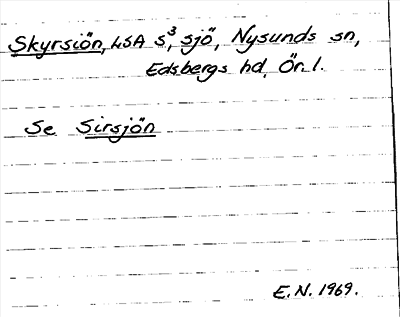 Skyrsiön, LSA S³, sjö, Nysunds sn,
Edsbergs hd, Ör. l.
Se Sirsjön
E.N. 1969.